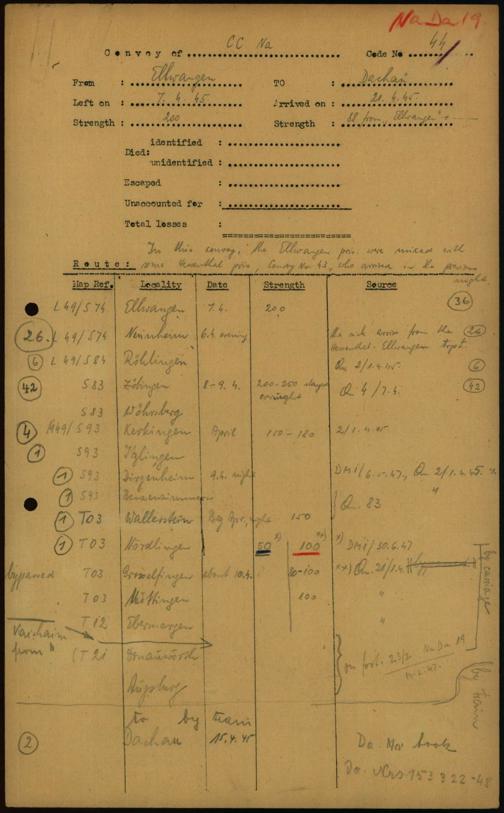 Na Da 19.
Convoy of CC Na Code No 44
From : Ellwangen TO : Dachau
Left on : 7. 4. 45 Arrived on : 21. 4. 45
Strength : 200 Strength :
identified :
Died:
unidentified :
Escaped :
Unaccounted for :
Total losses :
In this convoy, the Ellwangen pris. were mixed with
some pris., Convoy No 43, who arrived in the previous
night
Route:
Map Ref. Locality Date Strength Source
36
L49/S74 Ellwangen 7.4. 200
26. L49/S74 Neunheim 6.4 evening the from the 26
Ellwangen
6 L49/S84 Röhlingen Qu 2/1.4.45 6
42 S83 Zöbingen 8-9.4. 200-250 stayed overnight Q 4/7.4. 42
S83 Wöhrsberg
4 S93 Kerkingen April 150-180 2/1.4.45
1 S93 Itzlingen
1 S93 Dirgenheim 9.4. night DMi/6.5.47, Qu 2/1.4.45
1 S93 Benzenzimmern "
Q. 83
1 T03 Wallerstein Beg Apr. night 150
1 T03 Nördlingen 50 x) 100 xx) x) DMi/30.6.47
bypassed T03 Grosselfingen about 10.4. 80-100 xx) Qu 21/1.4
T03 Möttingen 100 "
T12 Ebermergen "
by carriage
from "
(T21 Donauwörth on foot. 23/2 Na Da 19
Augsburg
by train
to by train
2 Dachau 15.4.45 Da. Nos book
Da. Nrs 153 322-48